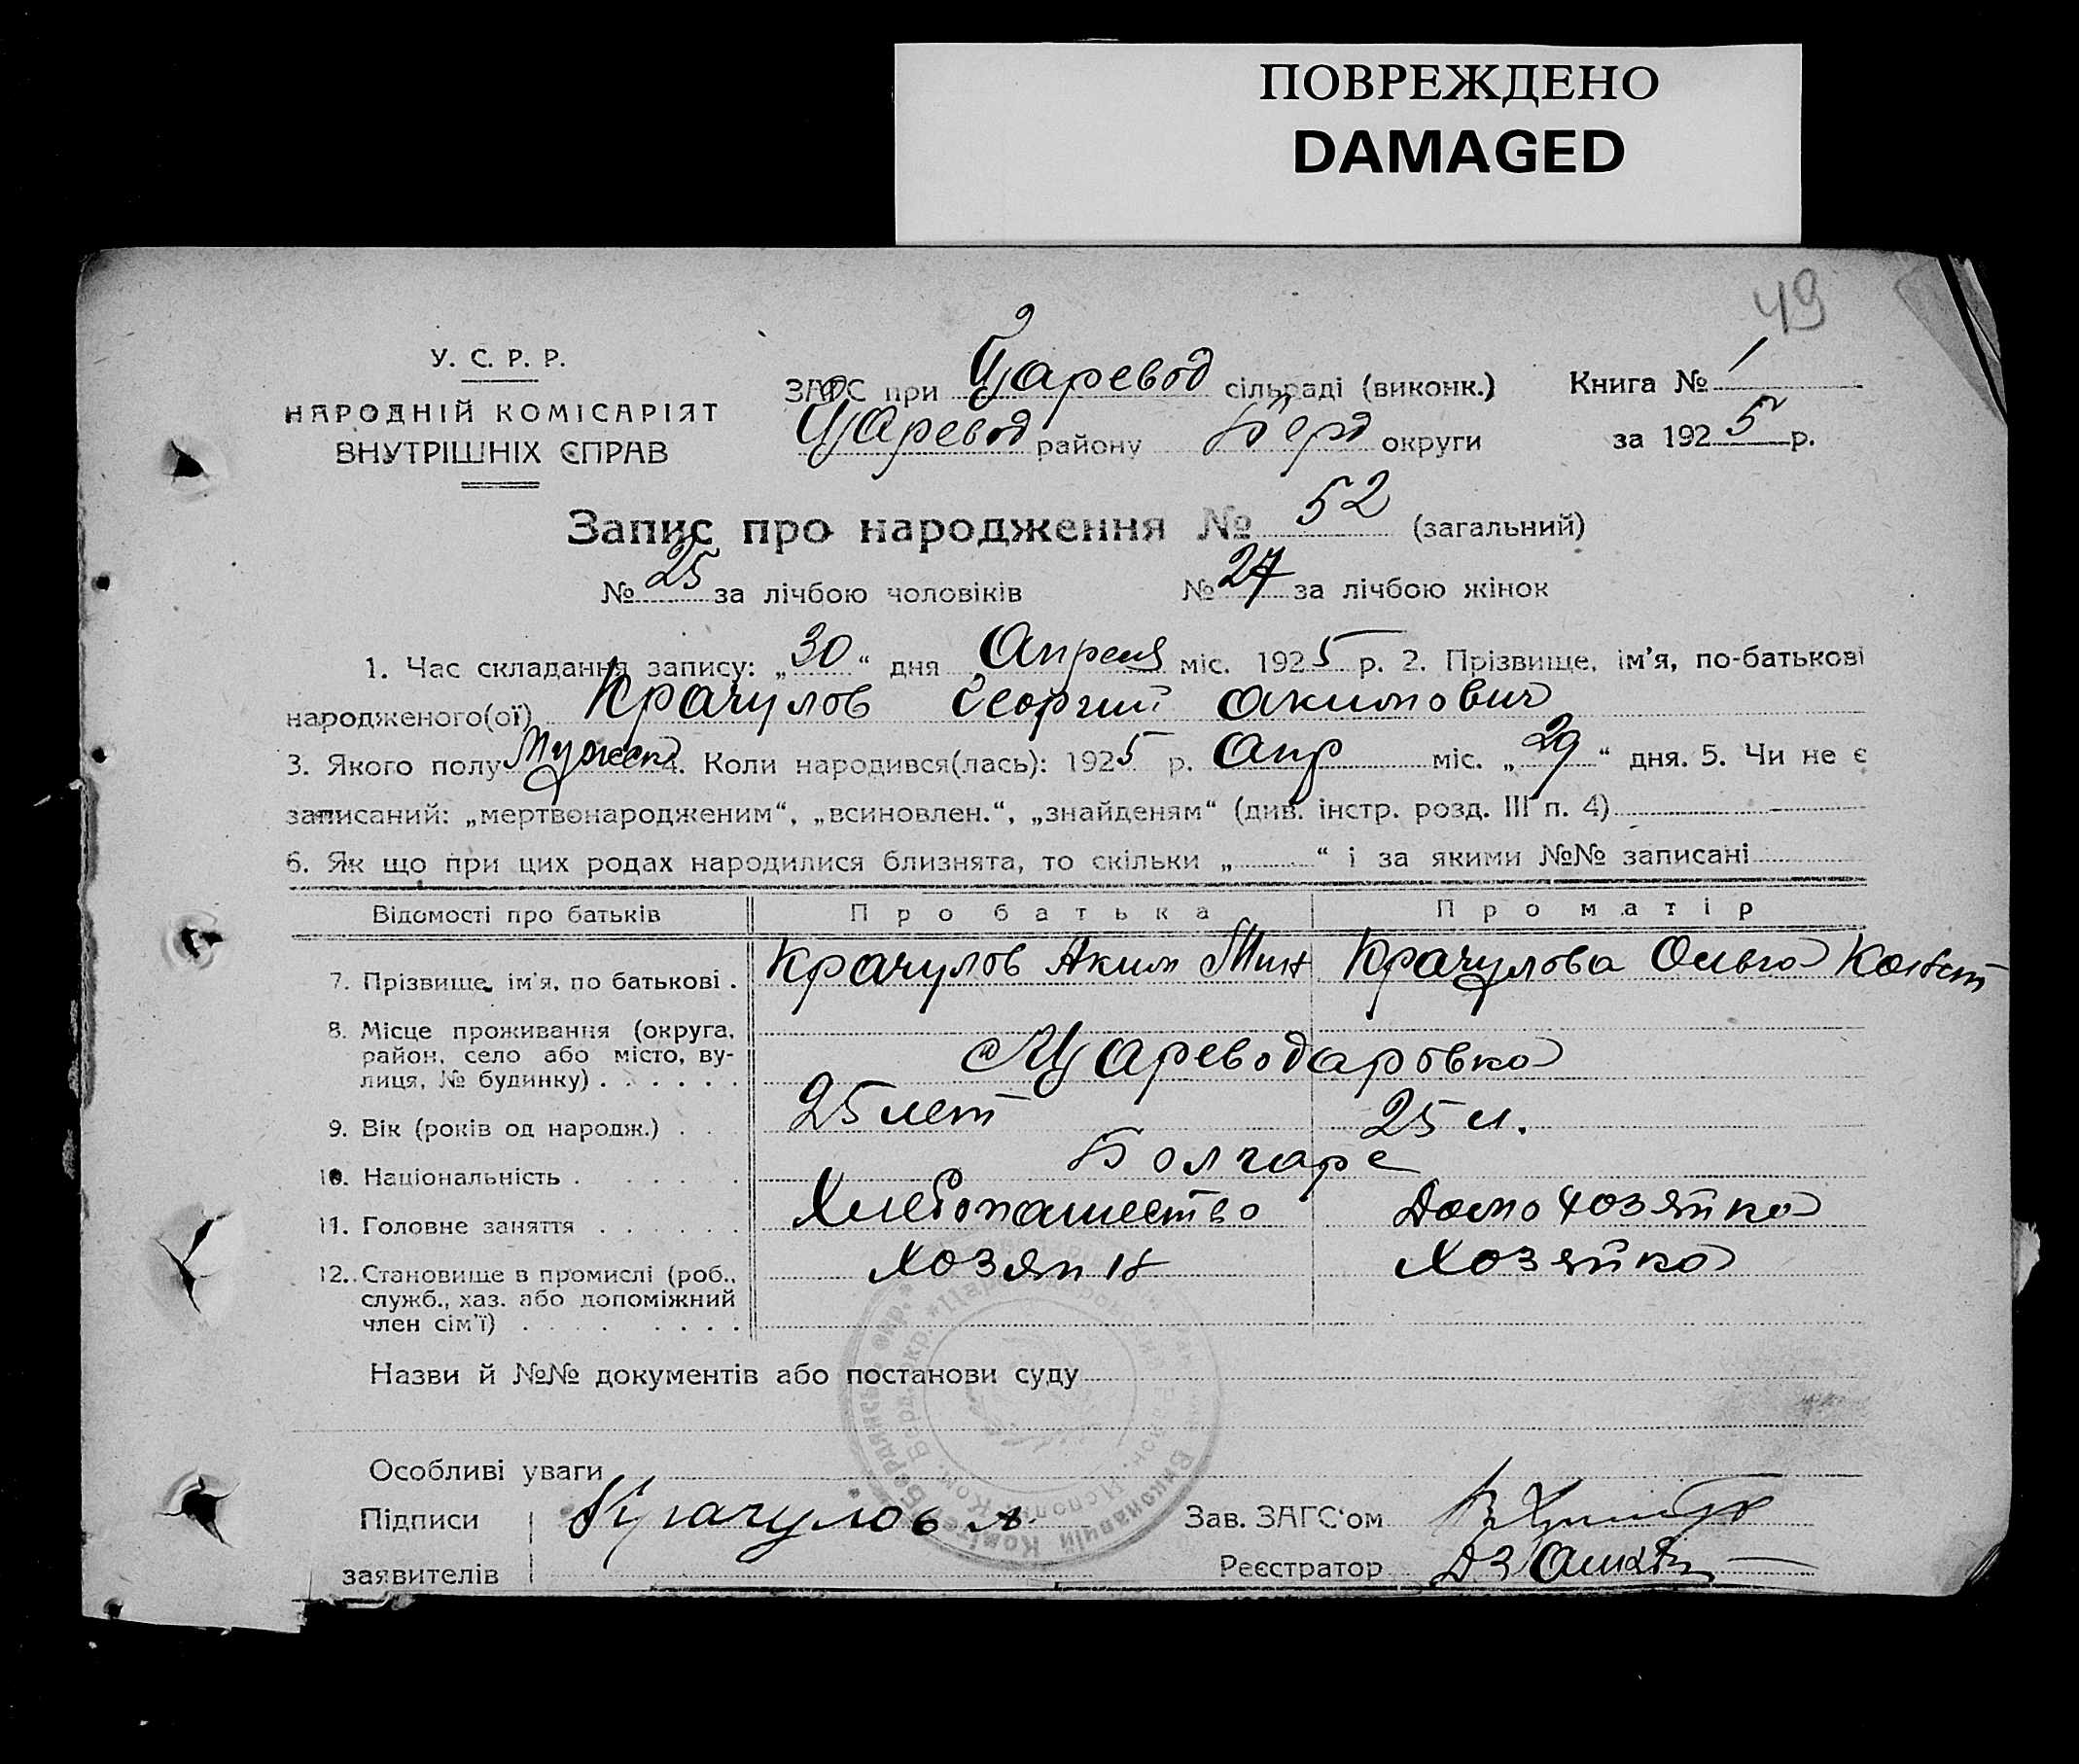 ПОВРЕЖДЕНО
DAMAGED
49
У. С. Р. Р.
НАРОДНІЙ КОМІСАРІЯТ
ВНУТРІШНІХ СПРАВ
ЗАГС при Царевод сільраді (виконк.) Книга № 1
Царевод району Берд округи за 1925 р.
Запис про народження № 52 (загальний)
№ 25 за лічбою чоловіків № 27 за лічбою жінок
1. Час складання запису: „30“ дня Апреля міс. 1925 р. 2. Прізвище, ім'я, по-батькові
народженого(ої) Крачулов Георгий Акимович
3. Якого полу Мужеск 4. Коли народився(лась): 1925 р. Апр міс. „29“ дня. 5. Чи не є
записаний: „мертвонародженим“, „всиновлен.“, „знайденям“ (див. інстр. розд. III п. 4)
6. Як що при цих родах народилися близнята, то скільки „ “ і за якими №№ записані
Відомості про батьків Про батька Про матір
7. Прізвище, ім'я, по батькові . Крачулов Аким Мин Крачулова Ольга Конст
8. Місце проживання (округа,
район, село або місто, ву-
лиця, № будинку) . . . . . . Цареводаровка
9. Вік (років од народж.) . . . 25 лет 25 л.
10. Національність . . . . . . Болгаре
11. Головне заняття . . . . . . Хлебопашество Домохозяйка
12. Становище в промислі (роб., Хозяин Хозяйка
служб., хаз. або допоміжний
член сім'ї) . . . . . . . .
Назви й №№ документів або постанови суду
Особливі уваги
Підписи Крачулов А. Зав. ЗАГС'ом
заявителів Реєстратор